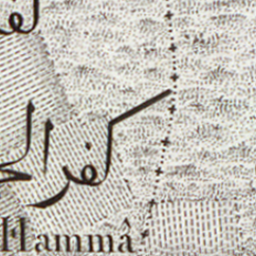 كفر الح
Hammâ